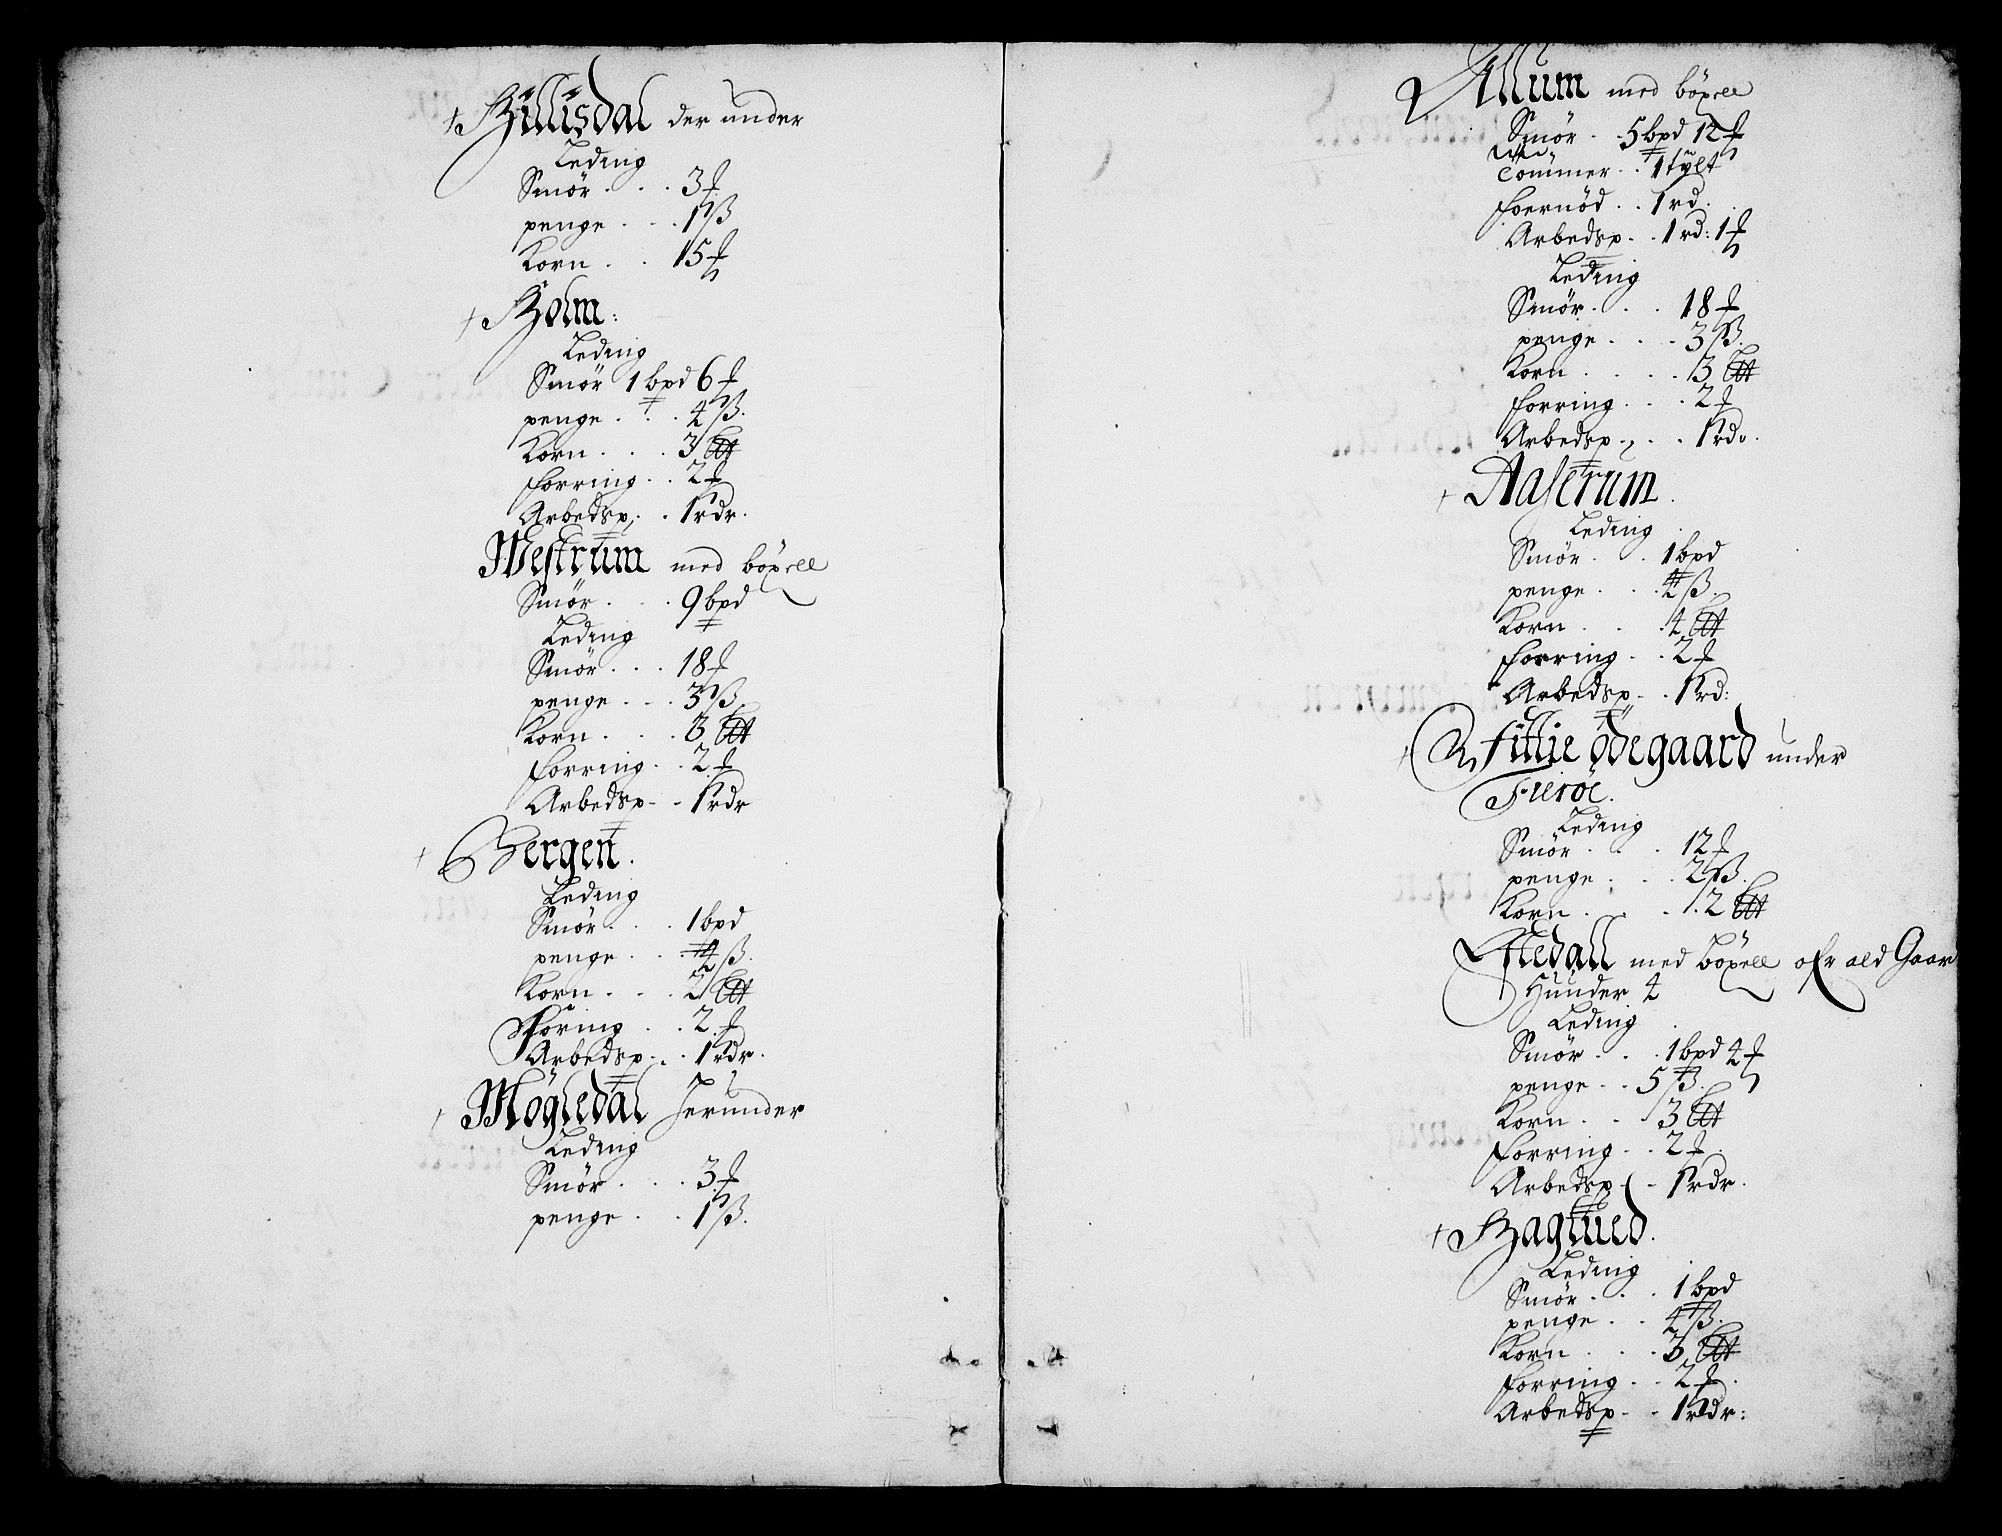 + Hillisdal der under
Leding
Smör . . . 3 ℔
penge . . . 1 ß
Korn . . 15 ℔
+ Holm:
Leding
Smör 1 bpd 6 ℔
penge . . . 4 ß.
Korn . . . 3
forring . . 2 ℔
Arbedsp. . . 1 rdr.
Westrum med böxell
Smör . . . 9 bpd
Leding
Smör . . . 18 ℔
penge . . . 3 ß
Korn . . . 3
forring . . 2 ℔
Arbedsp. . . 1 rdr
+ Bergen.
Leding
Smör . . . 1 bpd
penge . . 4 ß.
Korn . . . 2
foring . . 2 ℔
Arbedsp. . . 1 rdr.
+ Mögledal herunder
Leding
Smör . . . 3 ℔
penge . . 1 ß.
Allum med böxell
Smör . . 5 bpd 12 ℔
Tömmer . . 1 tylt
foernöd . . 1 rd.
Arbedsp. . . 1 rd: 1 ℔
Leding
Smör . . . 18 ℔
penge . . . 3 ß.
Korn . . . . 3
forring . . . 2 ℔
Arbedsp. . . . 1 rdr.
+ Aaserum.
Leding
Smör . . . 1 bpd
penge . . . 4 ß.
Korn . . . 4
forring . . 2 ℔
Arbedsp. . . 1 rd:
+ Fittie ödegaard under
Fieröe.
Leding
Smör . . . 12 ℔
penge . . . 2 ß.
Korn . . . . 2
med böxell ofr ald Gaar
Huuder 4
Leding
Smör . . . 1 bpd 4 ℔
penge . . 5 ß.
Korn . . 3
forring . . 2 ℔
Arbedsp. . . 1 rdr.
+ Hagtued.
Leding
Smör . . . 1 bpd
penge . . 4 ß.
Korn . . . 3
forring . . 2 ℔.
Arbedsp. . . 1 rdr: